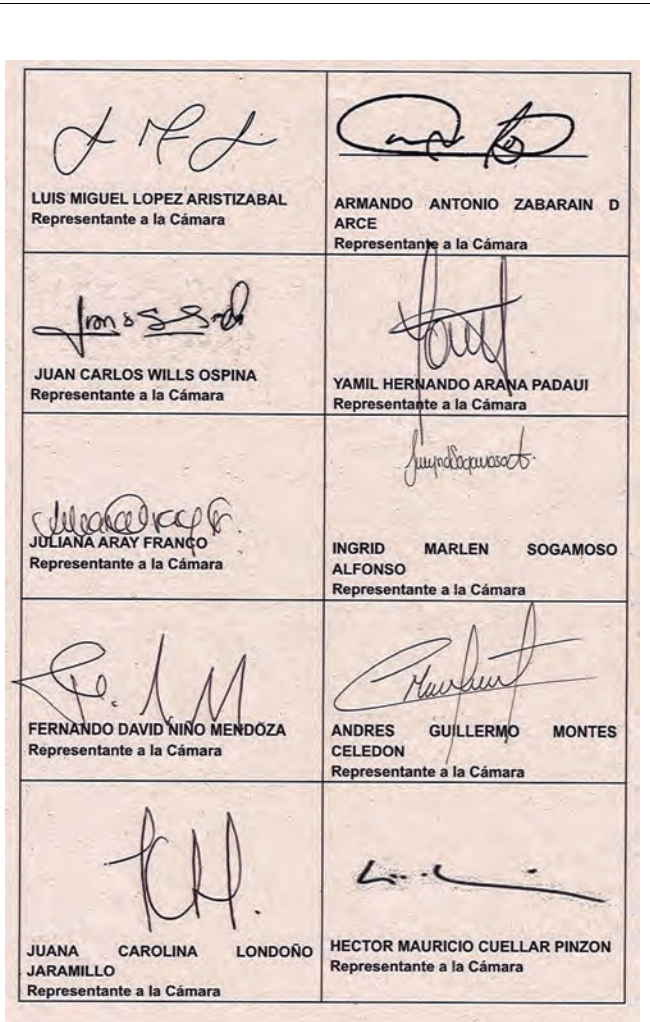 LUIS MIGUEL LOPEZ ARISTIZABAL
Representante a la Cámara
ARMANDO ANTONIO ZABARAIN D
ARCE
Representante a la Cámara
JUAN CARLOS WILLS OSPINA
Representante a la Cámara
YAMIL HERNANDO ARANA PADAUI
Representante a la Cámara
JULIANA ARAY FRANCO
Representante a la Cámara
INGRID MARLEN SOGAMOSO
ALFONSO
Representante a la Cámara
FERNANDO DAVID NIÑO MENDOZA
Representante a la Cámara
ANDRES GUILLERMO MONTES
CELEDON
Representante a la Cámara
JUANA CAROLINA LONDOÑO
JARAMILLO
Representante a la Cámara
HECTOR MAURICIO CUELLAR PINZON
Representante a la Cámara